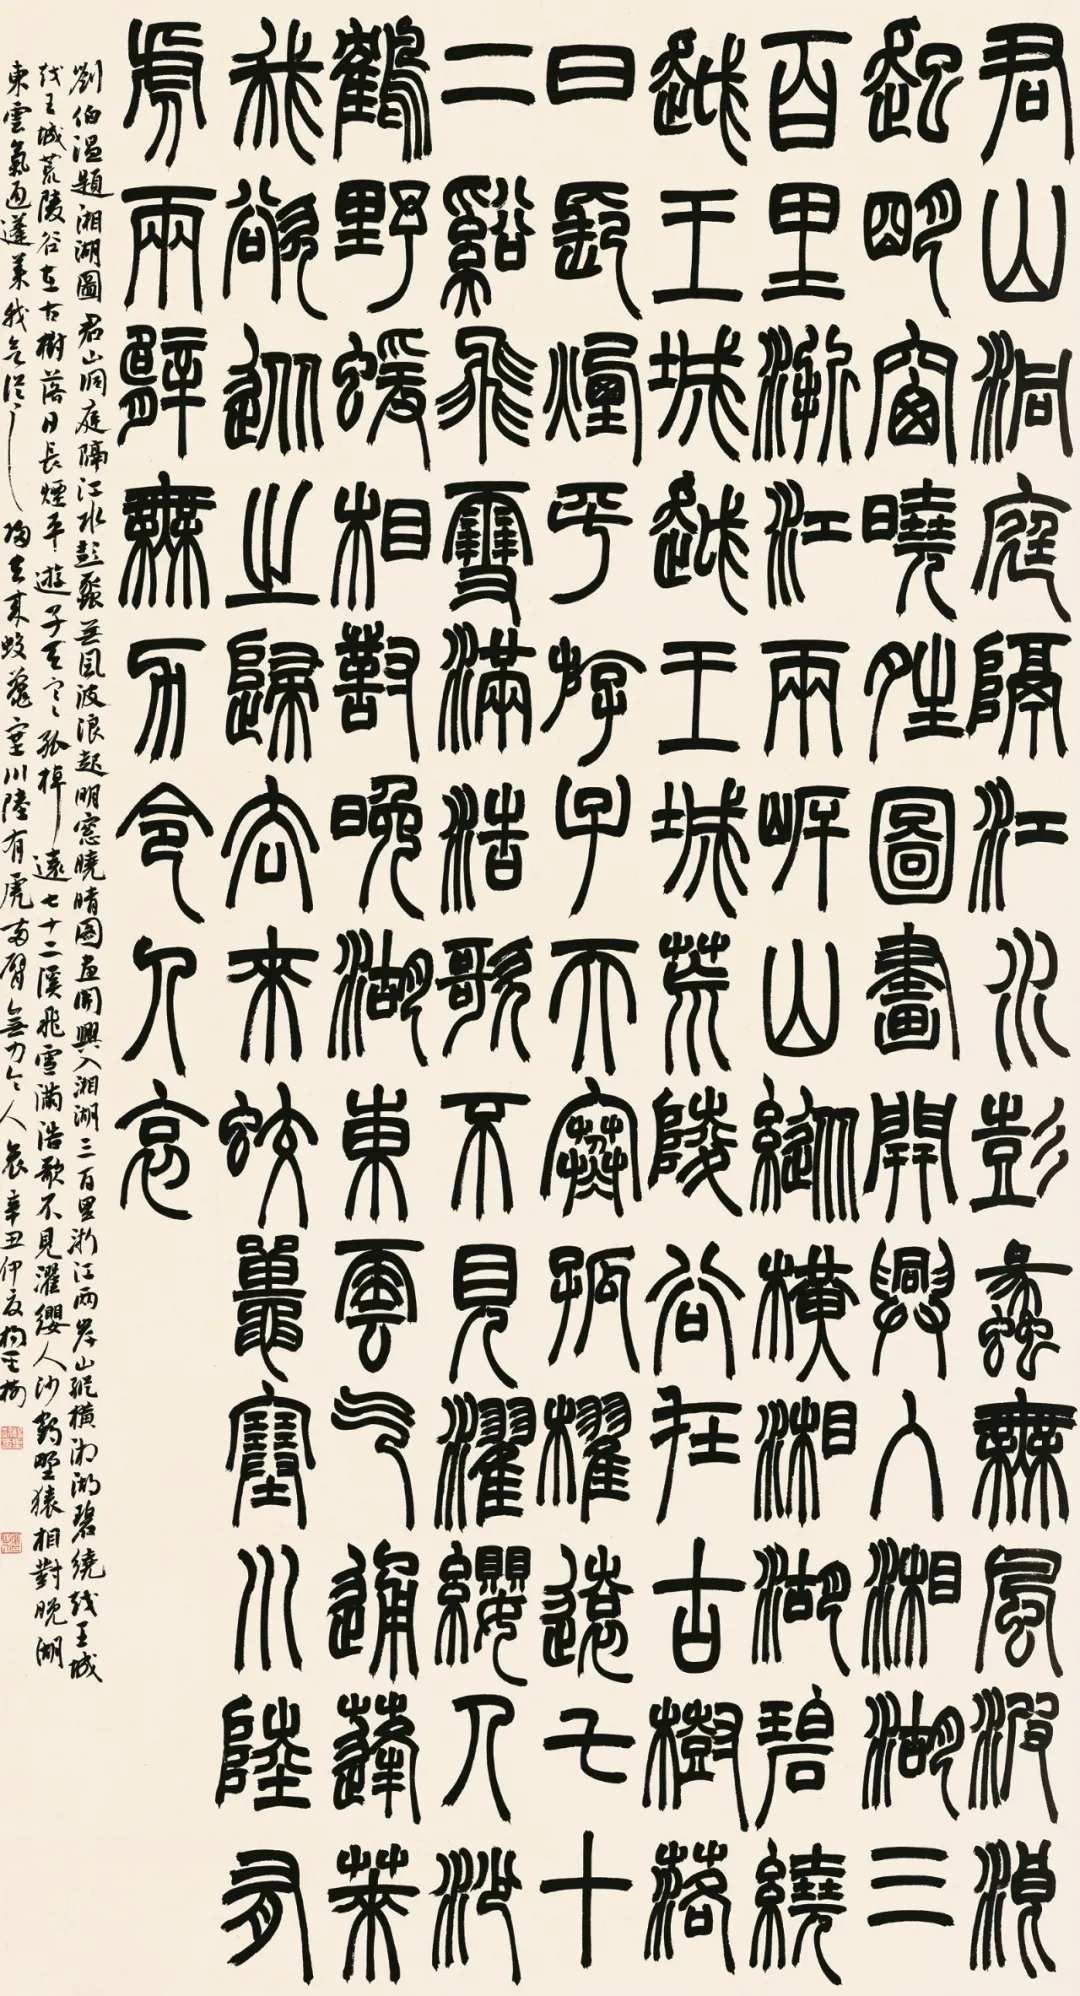 君山洞庭隔江水彭蠡無風波浪
起明窗曉晴圖畫開興入湘湖三
百里浙江兩岸山縱橫湘湖碧繞
越王城越王城荒陵谷在古樹落
日長煙平游子天寒孤櫂遠七十
二谿飛雪滿浩歌不見濯纓人沙
鶴野蝯相對晚湖東雲气通蓬萊
我欲從之歸去來蛟鼉塞川陸有
虎兩臂無力令人哀
劉伯温題湘湖圖君山洞庭隔江水彭蠡無風波浪起明窓曉晴圖畫開興入湘湖三百里浙江兩岸山縱橫湘湖碧繞越王城
越王城荒陵谷在古樹落日長煙平遊子天寒孤棹遠七十二溪飛雪滿浩歌不見濯纓人沙鶴野猿相對晚湖
東雲氣通蓬萊我欲從之歸去來蛟鼉塞川陸有虎兩臂無力令人哀辛丑仲夏